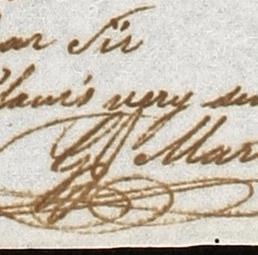 ar Sir
Yours very sin
G Mar